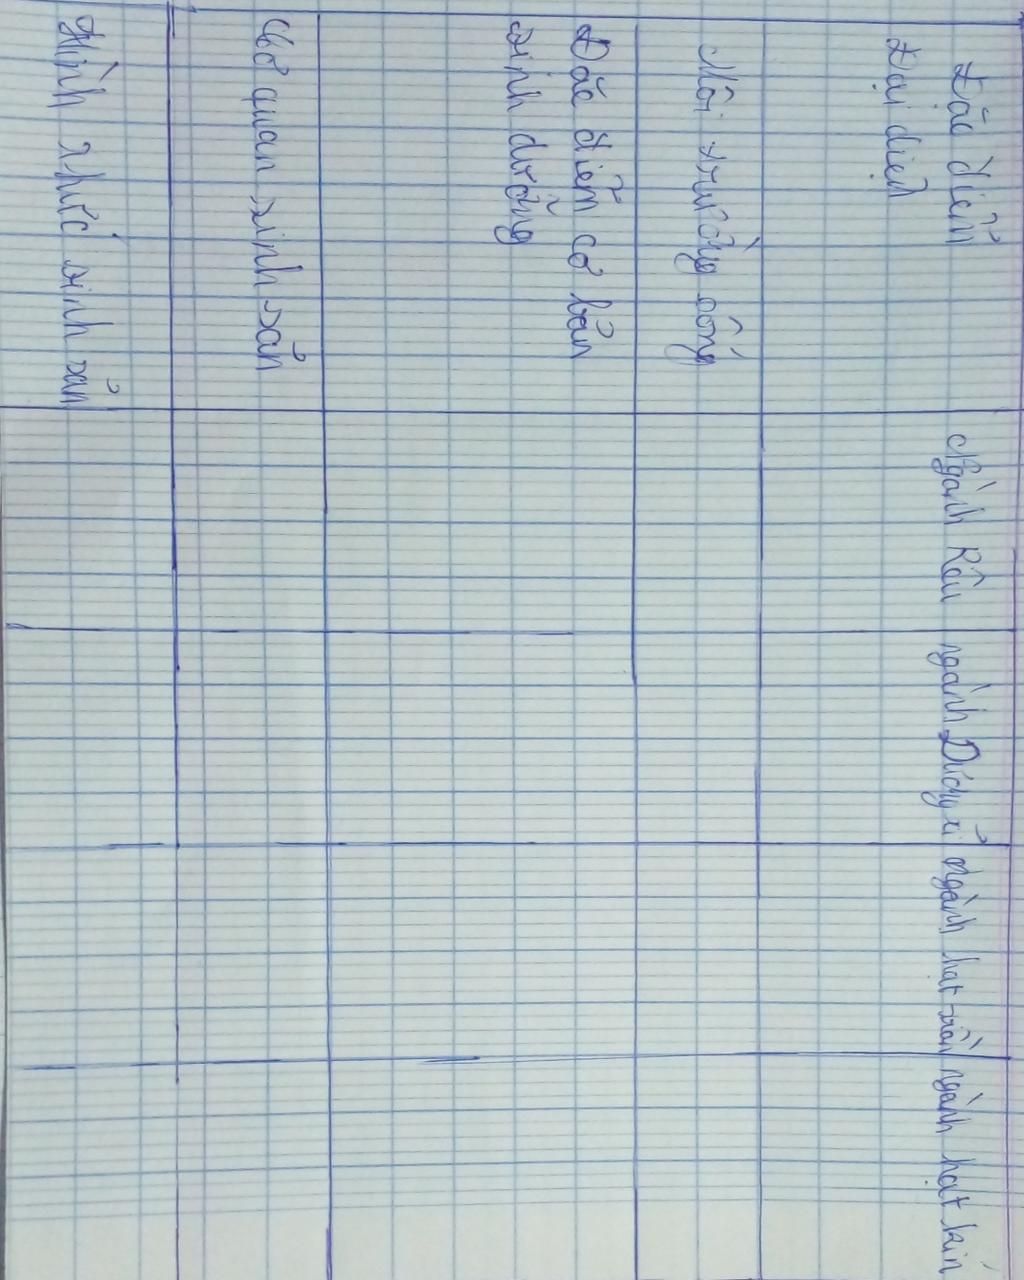 Đặc điểm
Đại diện
Ngành Rêu
ngành Dương xỉ
Ngành hạt trần
ngành hạt kín
Môi trường sống
Đặc điểm cơ bản
sinh dưỡng
Cơ quan sinh sản
Hình thức sinh sản